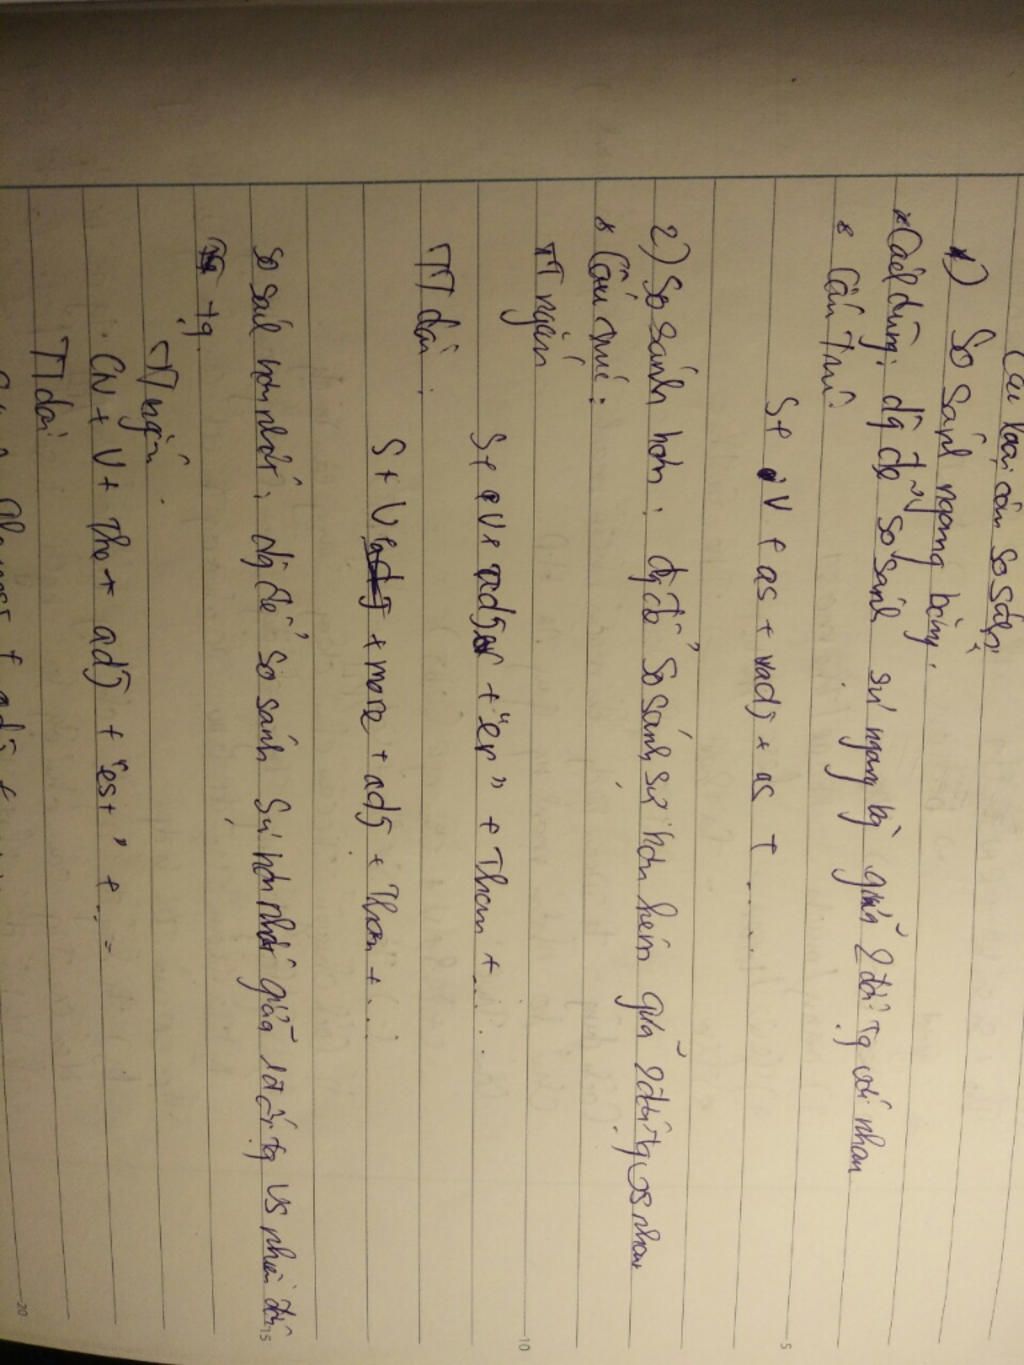 Các loại câu so sánh
1) So sánh ngang bằng.
* Cách dùng: dg để so sánh sự ngang bg giữa 2 đối tg với nhau
* Cấu trúc:
S + V + as + adj + as + ....
2) So sánh hơn: dg để so sánh sự hơn kém giữa 2 đối tg vs nhau
* Cấu trúc:
TT ngắn
S + V + adj + "er" + Than + ....
TT dài:
S + V + more + adj + Than + ...
So sánh hơn nhất: dg để so sánh sự hơn nhất giữa 1 đối tg vs nhiều đối
tg.
TT ngắn
CN + V + The + adj + "est" + ...
TT dài
+ adj +
5
10
15
20